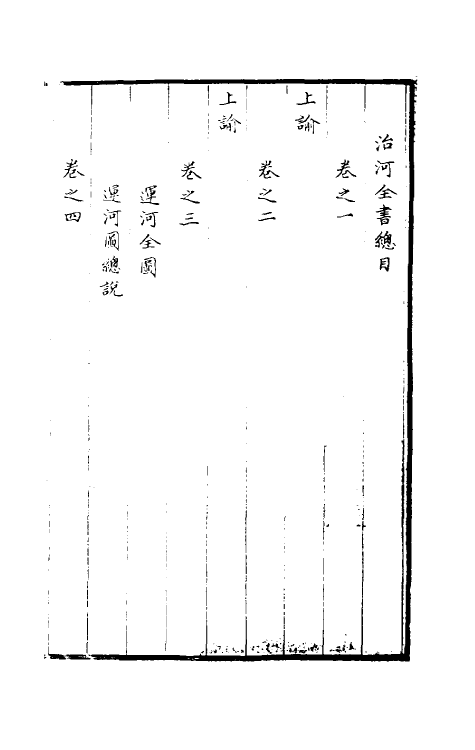 治河全書總目
卷之一
上諭
卷之二
上諭
卷之三
運河全圖
運河圖總說
卷之四